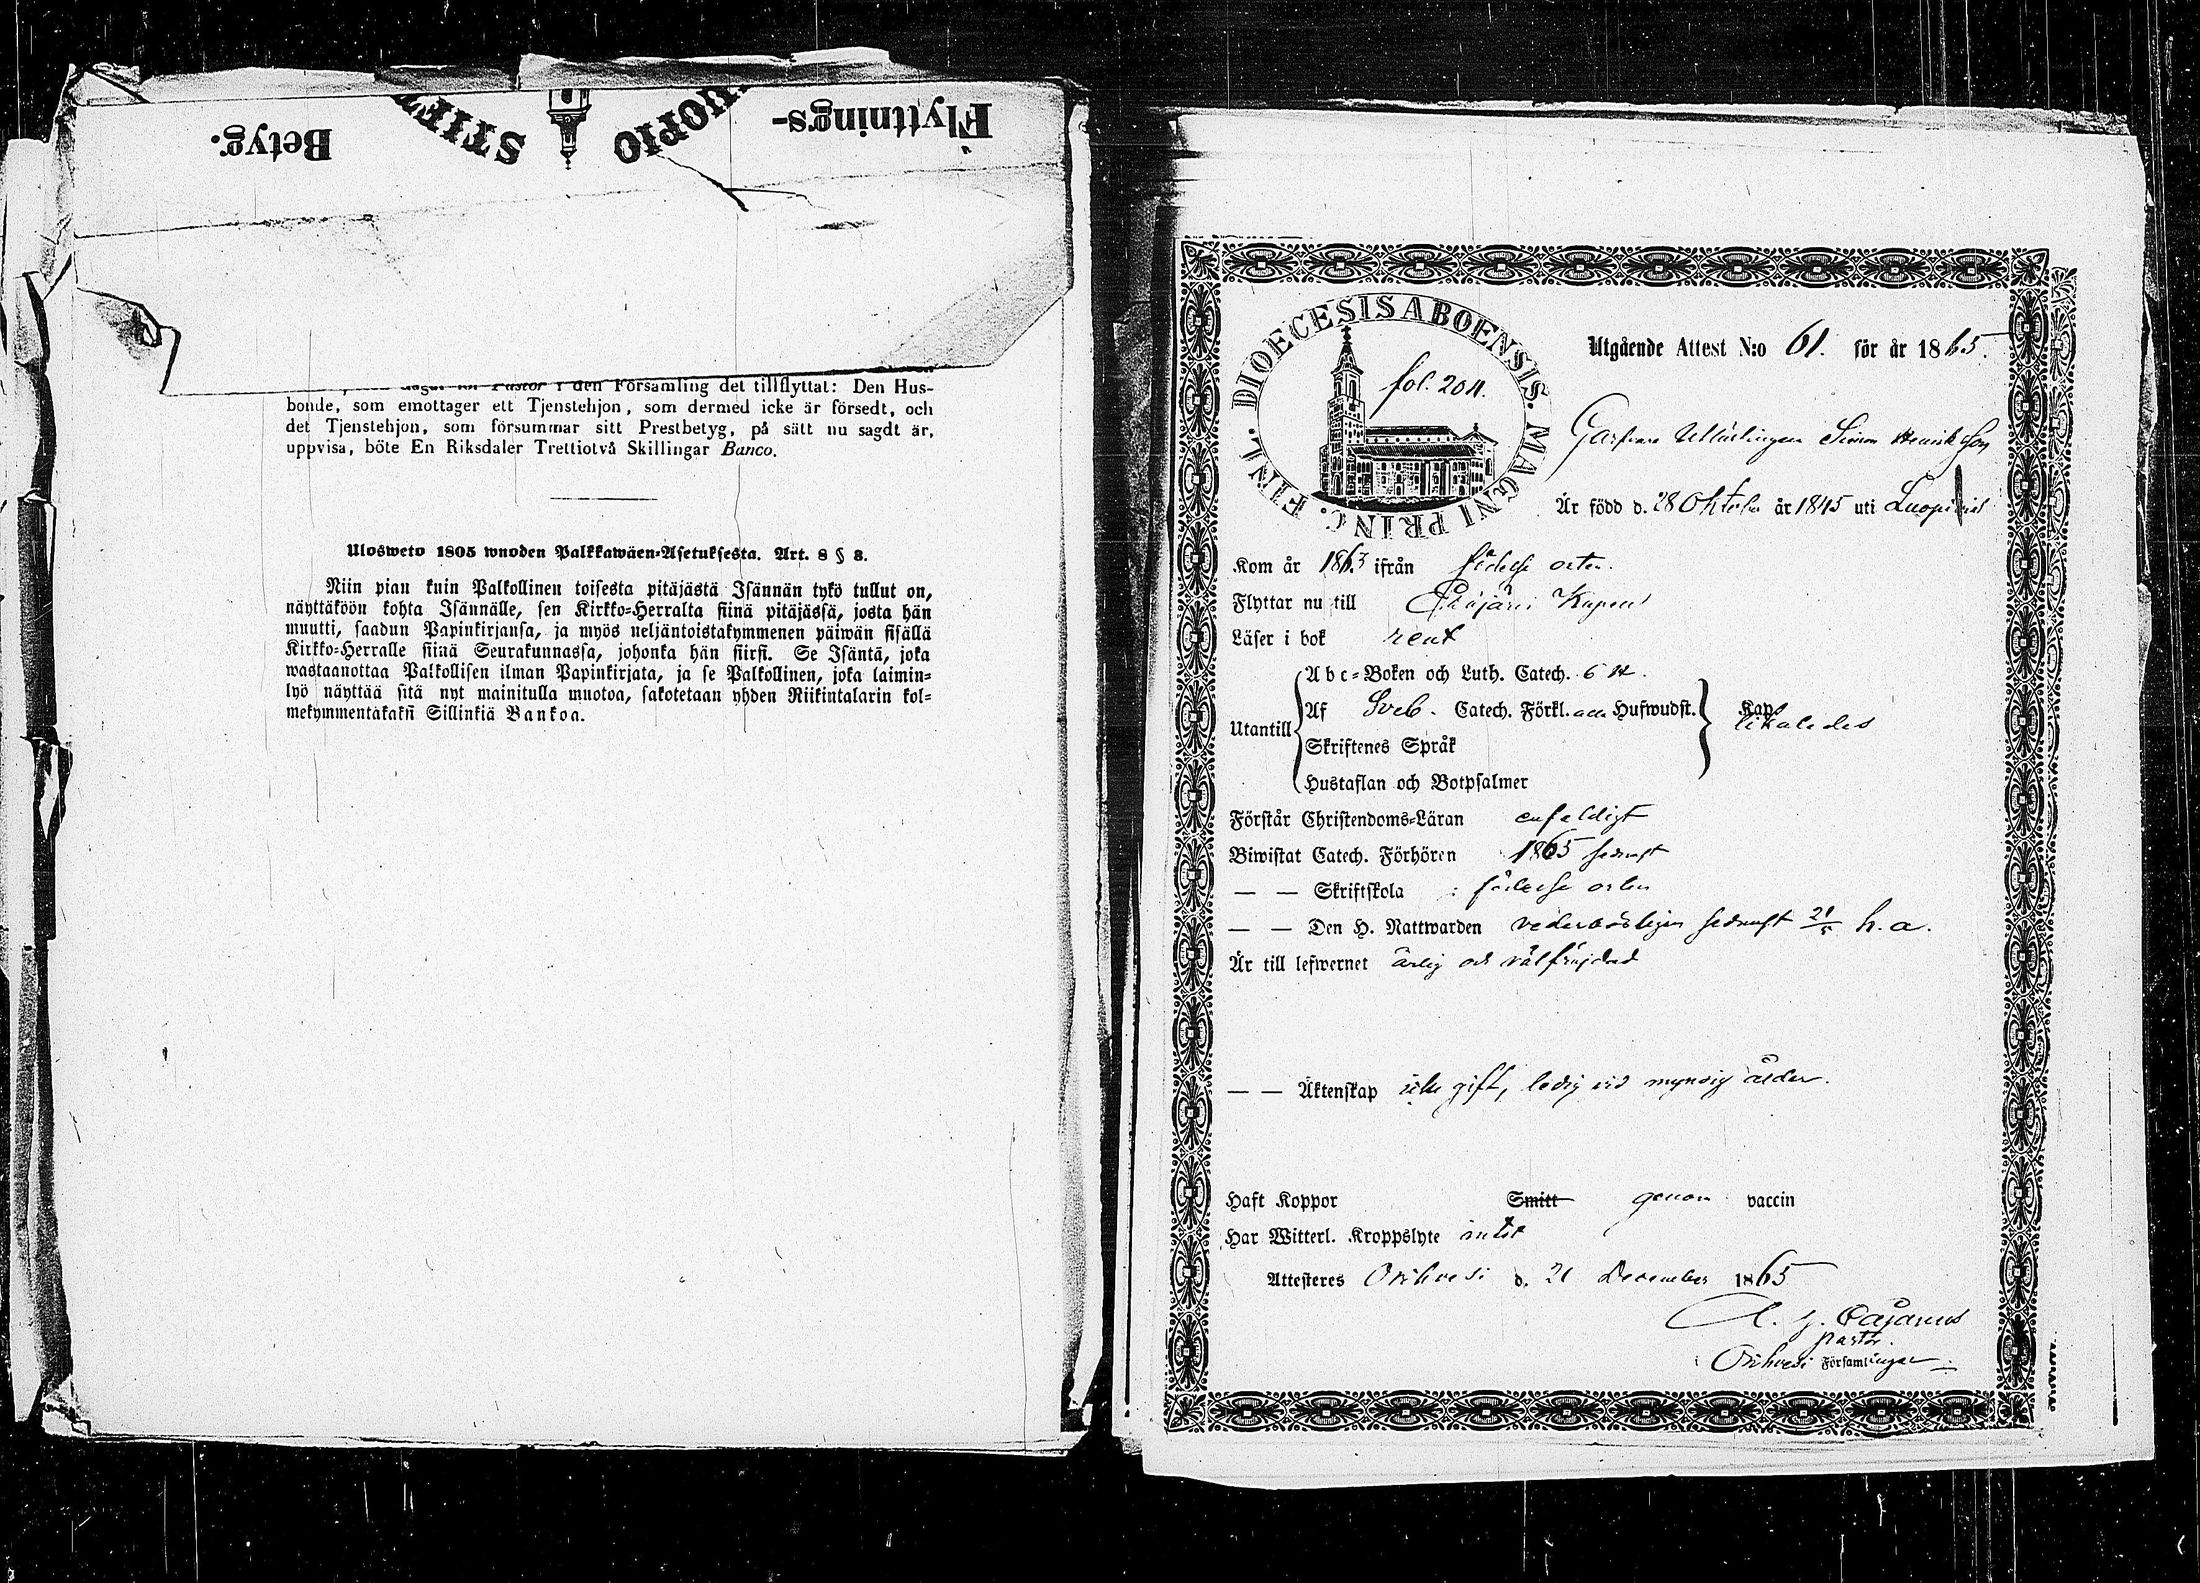 Flyttnings-
KUOPIO STIFT
Betyg.
Pastor i den Församling det tillflyttat: Den Hus-
bonde, som emottager ett Tjenstehjon, som dermed icke är försedt, och
det Tjenstehjon, som försummar sitt Prestbetyg, på sätt nu sagdt är,
uppvisa, böte En Riksdaler Trettiotvå Skillingar Banco.
Ulosweto 1805 wuoden Palkkawäen-Asetuksesta. Art. 8 § 8.
Niin pian kuin Palkollinen toisesta pitäjästä Isännän tykö tullut on,
näyttäköön kohta Isännälle, sen Kirkko-Herralta siinä pitäjässä, josta hän
muutti, saadun Papinkirjansa, ja myös neljäntoistakymmenen päiwän sisällä
Kirkko-Herralle siinä Seurakunnassa, johonka hän siirsi. Se Isäntä, joka
wastaanottaa Palkollisen ilman Papinkirjata, ja se Palkollinen, joka laimin-
lyö näyttää sitä nyt mainitulla muotoa, sakotetaan yhden Riikintalarin kol-
mekymmentäkaksi Sillinkiä Bankoa.
DIOECESIS ABOENSIS. MAGNI PRINC. FINL.
fol. 204.
Utgående Attest N:o 61. för år 1865.
Simon Henriksson
Är född d. 28 Oktober år 1845 uti Luopiois
Kom år 1863 ifrån födelse orten.
Flyttar nu till Eräjärvi Kapell
Läser i bok rent
Abc-Boken och Luth. Catech.
Utantill Af Sveb. Catech. Förkl. och Hufwudst. Kap.
likaledes
Skriftenes Språk
Hustaflan och Botpsalmer
Förstår Christendoms-Läran enfaldigt
Biwistat Catech. Förhören 1865 sednast
— — Skriftskola i födelse orten
— — Den H. Nattwarden vederbörligen sednast h. a.
Är till lefwernet ärlig och välfräjdad
— — Äktenskap icke gift, ledig vid myndig ålder.
Haft Koppor Smitt genom vaccin
Har Witterl. Kroppslyte intet
Attesteres Orihvesi d. 21 December 1865
A. J. Cajanus
Pastor.
i Orihvesi Församlingar